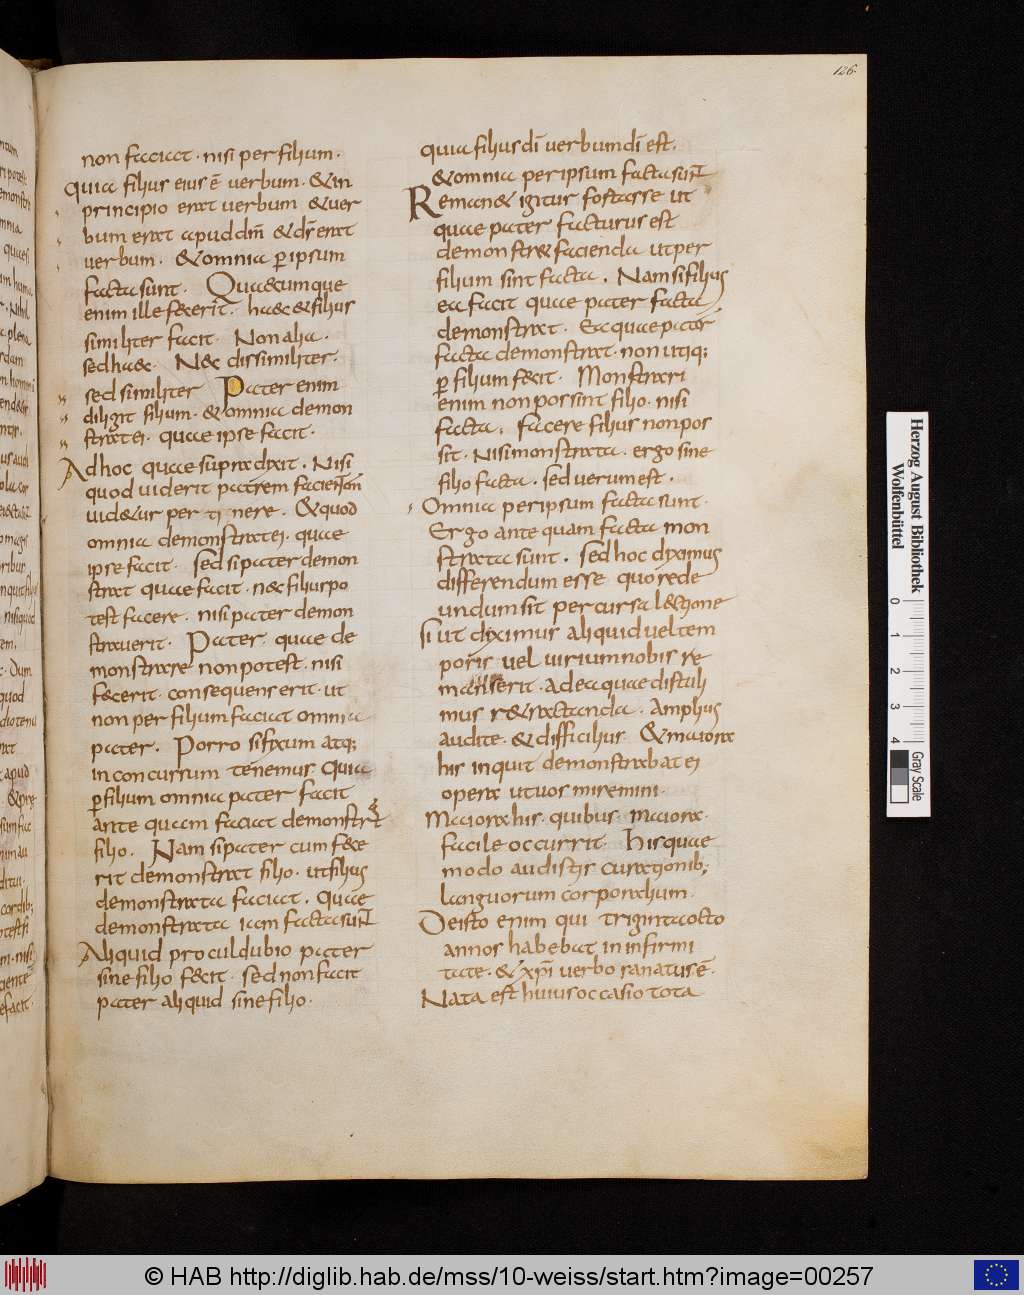 126.
non faciat · nisi per filium ·
quia filius eius ē verbum · & in
principio erat verbum & ver
bum erat apud dm̄ & ds̄ erat
verbum · & omnia ꝑ ipsum
facta sunt · Quaecumque
enim ille fecerit · haec & filius
similiter facit · Non alia ·
sed haec · Nec dissimiliter ·
sed similiter Pater enim
diligit filium · & omnia demon
strat ei · quae ipse facit ·
Ad hoc quae supra dixit · Nisi
quod viderit patrem facien
vid&ur per ti nere · & quod
omnia demonstrat ei · quae
ipse facit · sed si pater demon
strat quae facit · nec filius po
test facere · nisi pater demon
straverit · Pater · quae de
monstrare non potest · nisi
fecerit · consequens erit · ut
non per filium faciat omnia
pater · Porro si fixum atq;
inconcussum tenemus · quia
ꝑ filium omnia pater facit
ante quam faciat demonstrat
filio · Nam si pater cum fece
rit demonstrat filio · ut filius
demonstrata faciat · quae
demonstrata iam facta sunt
Aliquid proculdubio pater
sine filio fecit · sed non facit
pater aliquid sine filio ·
quia filius dī verbum dī est ·
& omnia per ipsum facta sunt
Reman& igitur fortasse ut
quae pater facturus est
demonstr& facienda ut per
filium sint facta · Nam si filius
ea facit quae pater facta
demonstrat · Ea quae pater
facta demonstrat · non utiq;
ꝑ filium fecit · Monstrari
enim non possint filio · nisi
facta · facere filius non pos
sit · nisi monstrata · ergo sine
filio facta · sed verum est ·
Omnia per ipsum facta sunt ·
Ergo ante quam facta mon
strata sunt · sed hoc diximus
differendum esse quo rede
undum sit percursa lectione
si ut diximus aliquid vel tem
poris vel virium nobis re
manserit · ad ea quae distuli
mus r&ractanda · Amplius
audite · & difficilius & maiora
his inquit demonstrabat ei
opera ut vos miremini ·
Maiora his · quibus · maiora ·
facile occurrit · his quae
modo audistis curationib;
languorum corporalium ·
De isto enim qui triginta octo
annos habebat in infirmi
tate · & xpī verbo sanatus ē ·
Nata est huius occasio tota
Herzog August Bibliothek
Wolfenbüttel
0 1 2 3 4
Gray Scale
© HAB http://diglib.hab.de/mss/10-weiss/start.htm?image=00257